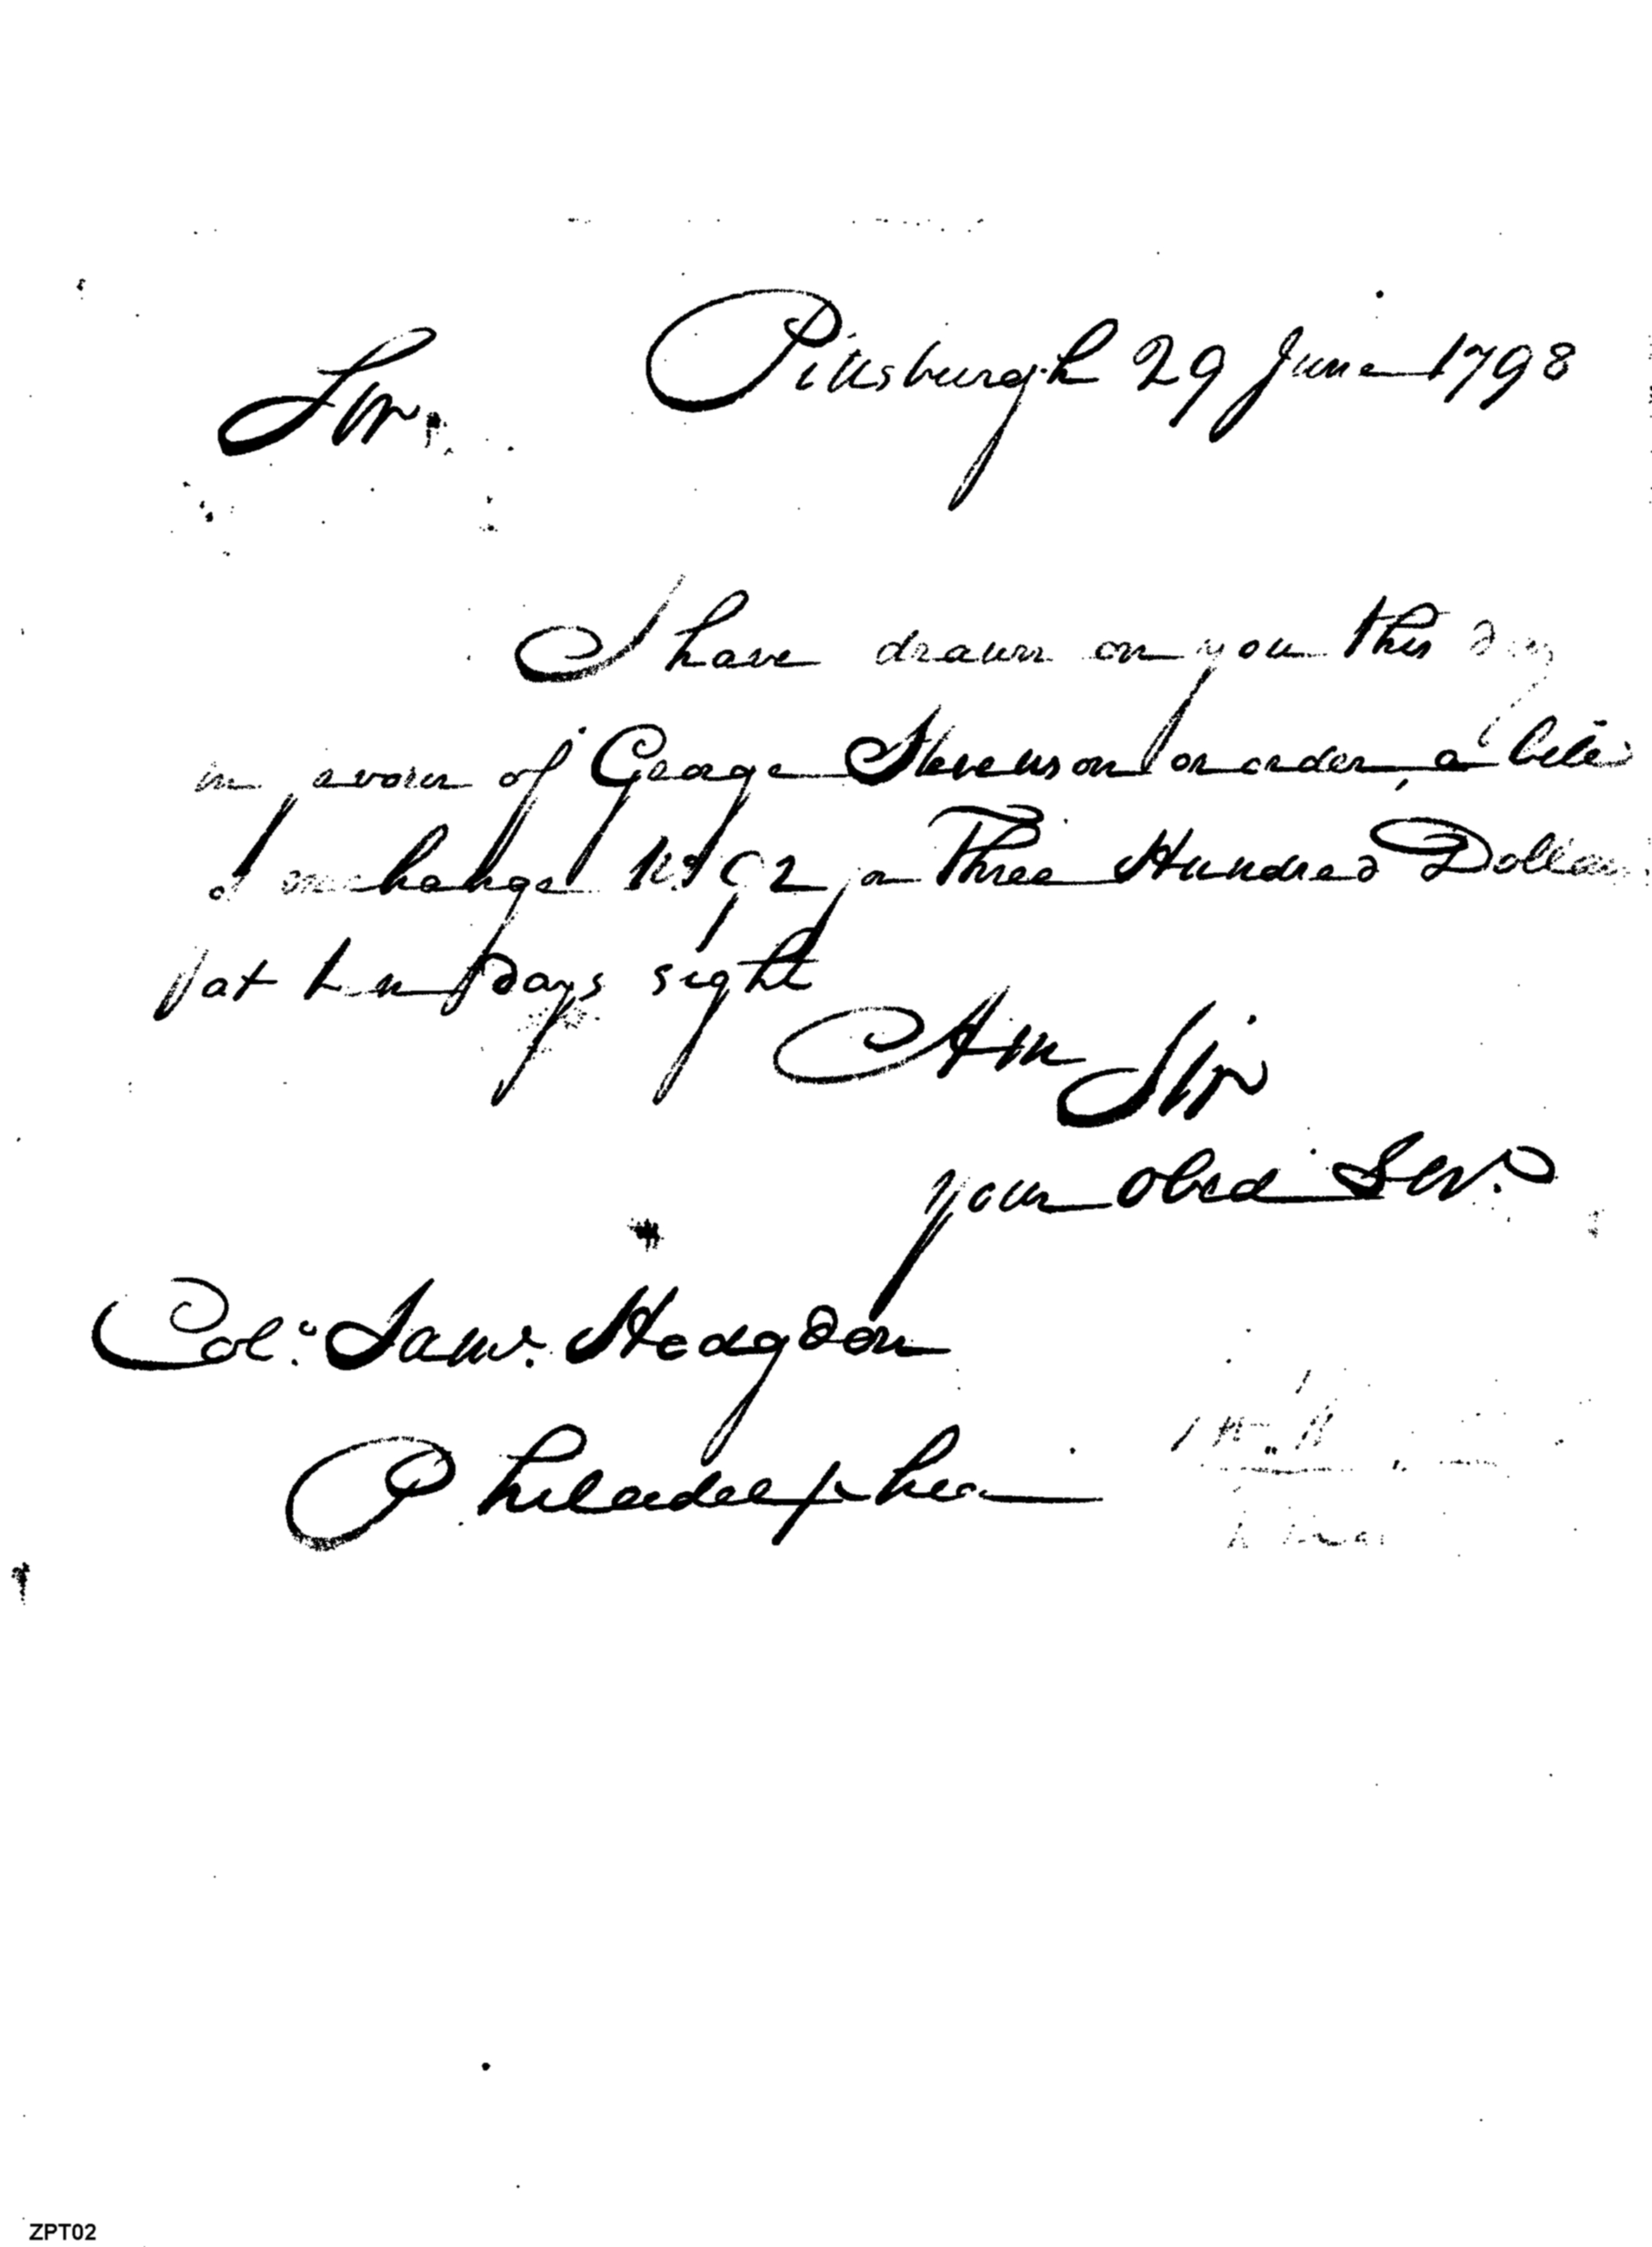 Pittsburgh 29 June 1798
Sir.
I have drawn on you this day
in favour of George Stevenson or order, a bill
of exchange for Three Hundred Dollars
at ten Days sight
Am Sir
your Obed Servt.
Col: Saml. Hodgdon
Philadelphia
ZPT02